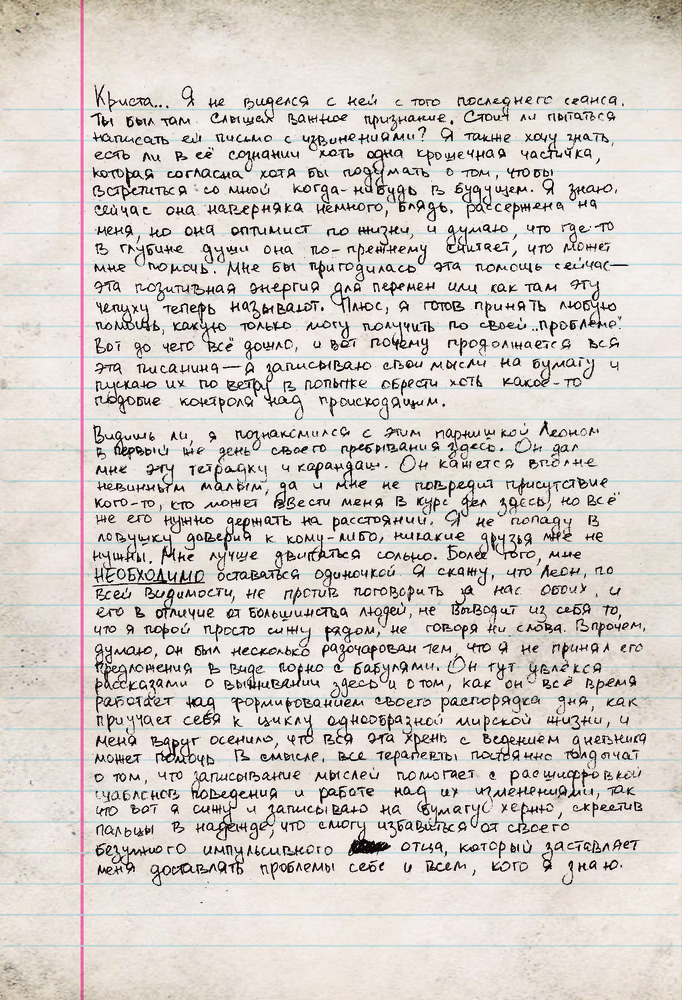 Криста... Я не виделся с ней с того последнего сеанса.
Ты был там. Слышал важное признание. Стоит ли пытаться
написать ей письмо с извинениями? Я также хочу знать,
есть ли в её сознании хоть одна крошечная частичка,
которая согласна хотя бы подумать о том, чтобы
встретиться со мной когда-нибудь в будущем. Я знаю,
сейчас она наверняка немного, блядь, рассержена на
меня, но она оптимист по жизни, и думаю, что где-то
в глубине души она по-прежнему считает, что может
мне помочь. Мне бы пригодилась эта помощь сейчас—
эта позитивная энергия для перемен или как там эту
чепуху теперь называют. Плюс, я готов принять любую
помощь, какую только могу получить по своей „проблеме".
Вот до чего всё дошло, и вот почему продолжается вся
эта писанина—я записываю свои мысли на бумагу и
пускаю их по ветру в попытке обрести хоть какое-то
подобие контроля над происходящим.
Видишь ли, я познакомился с этим парнишкой Леоном
в первый же день своего пребывания здесь. Он дал
мне эту тетрадку и карандаш. Он кажется вполне
невинным малым, да и мне не повредит присутствие
кого-то, кто может ввести меня в курс дел здесь, но всё
же его нужно держать на расстоянии. Я не попаду в
ловушку доверия к кому-либо, никакие друзья мне не
нужны. Мне лучше двигаться сольно. Более того, мне
НЕОБХОДИМО оставаться одиночкой. Я скажу, что Леон, по
всей видимости, не против поговорить за нас обоих, и
его в отличие от большинства людей, не выводит из себя то,
что я порой просто сижу рядом, не говоря ни слова. Впрочем,
думаю, он был несколько разочарован тем, что я не принял его
предложения в виде порно с бабулями. Он тут увлёкся
рассказами о выживании здесь и о том, как он всё время
работает над формированием своего распорядка дня, как
приучает себя к циклу однообразной мирской жизни, и
меня вдруг осенило, что вся эта хрень с ведением дневника
может помочь. В смысле, все терапевты постоянно толдычат
о том, что записывание мыслей помогает с расшифровкой
шаблонов поведения и работе над их изменениями, так
что вот я сижу и записываю на бумагу херню, скрестив
пальцы в надежде, что смогу избавиться от своего
безумного импульсивного отца, который заставляет
меня доставлять проблемы себе и всем, кого я знаю.